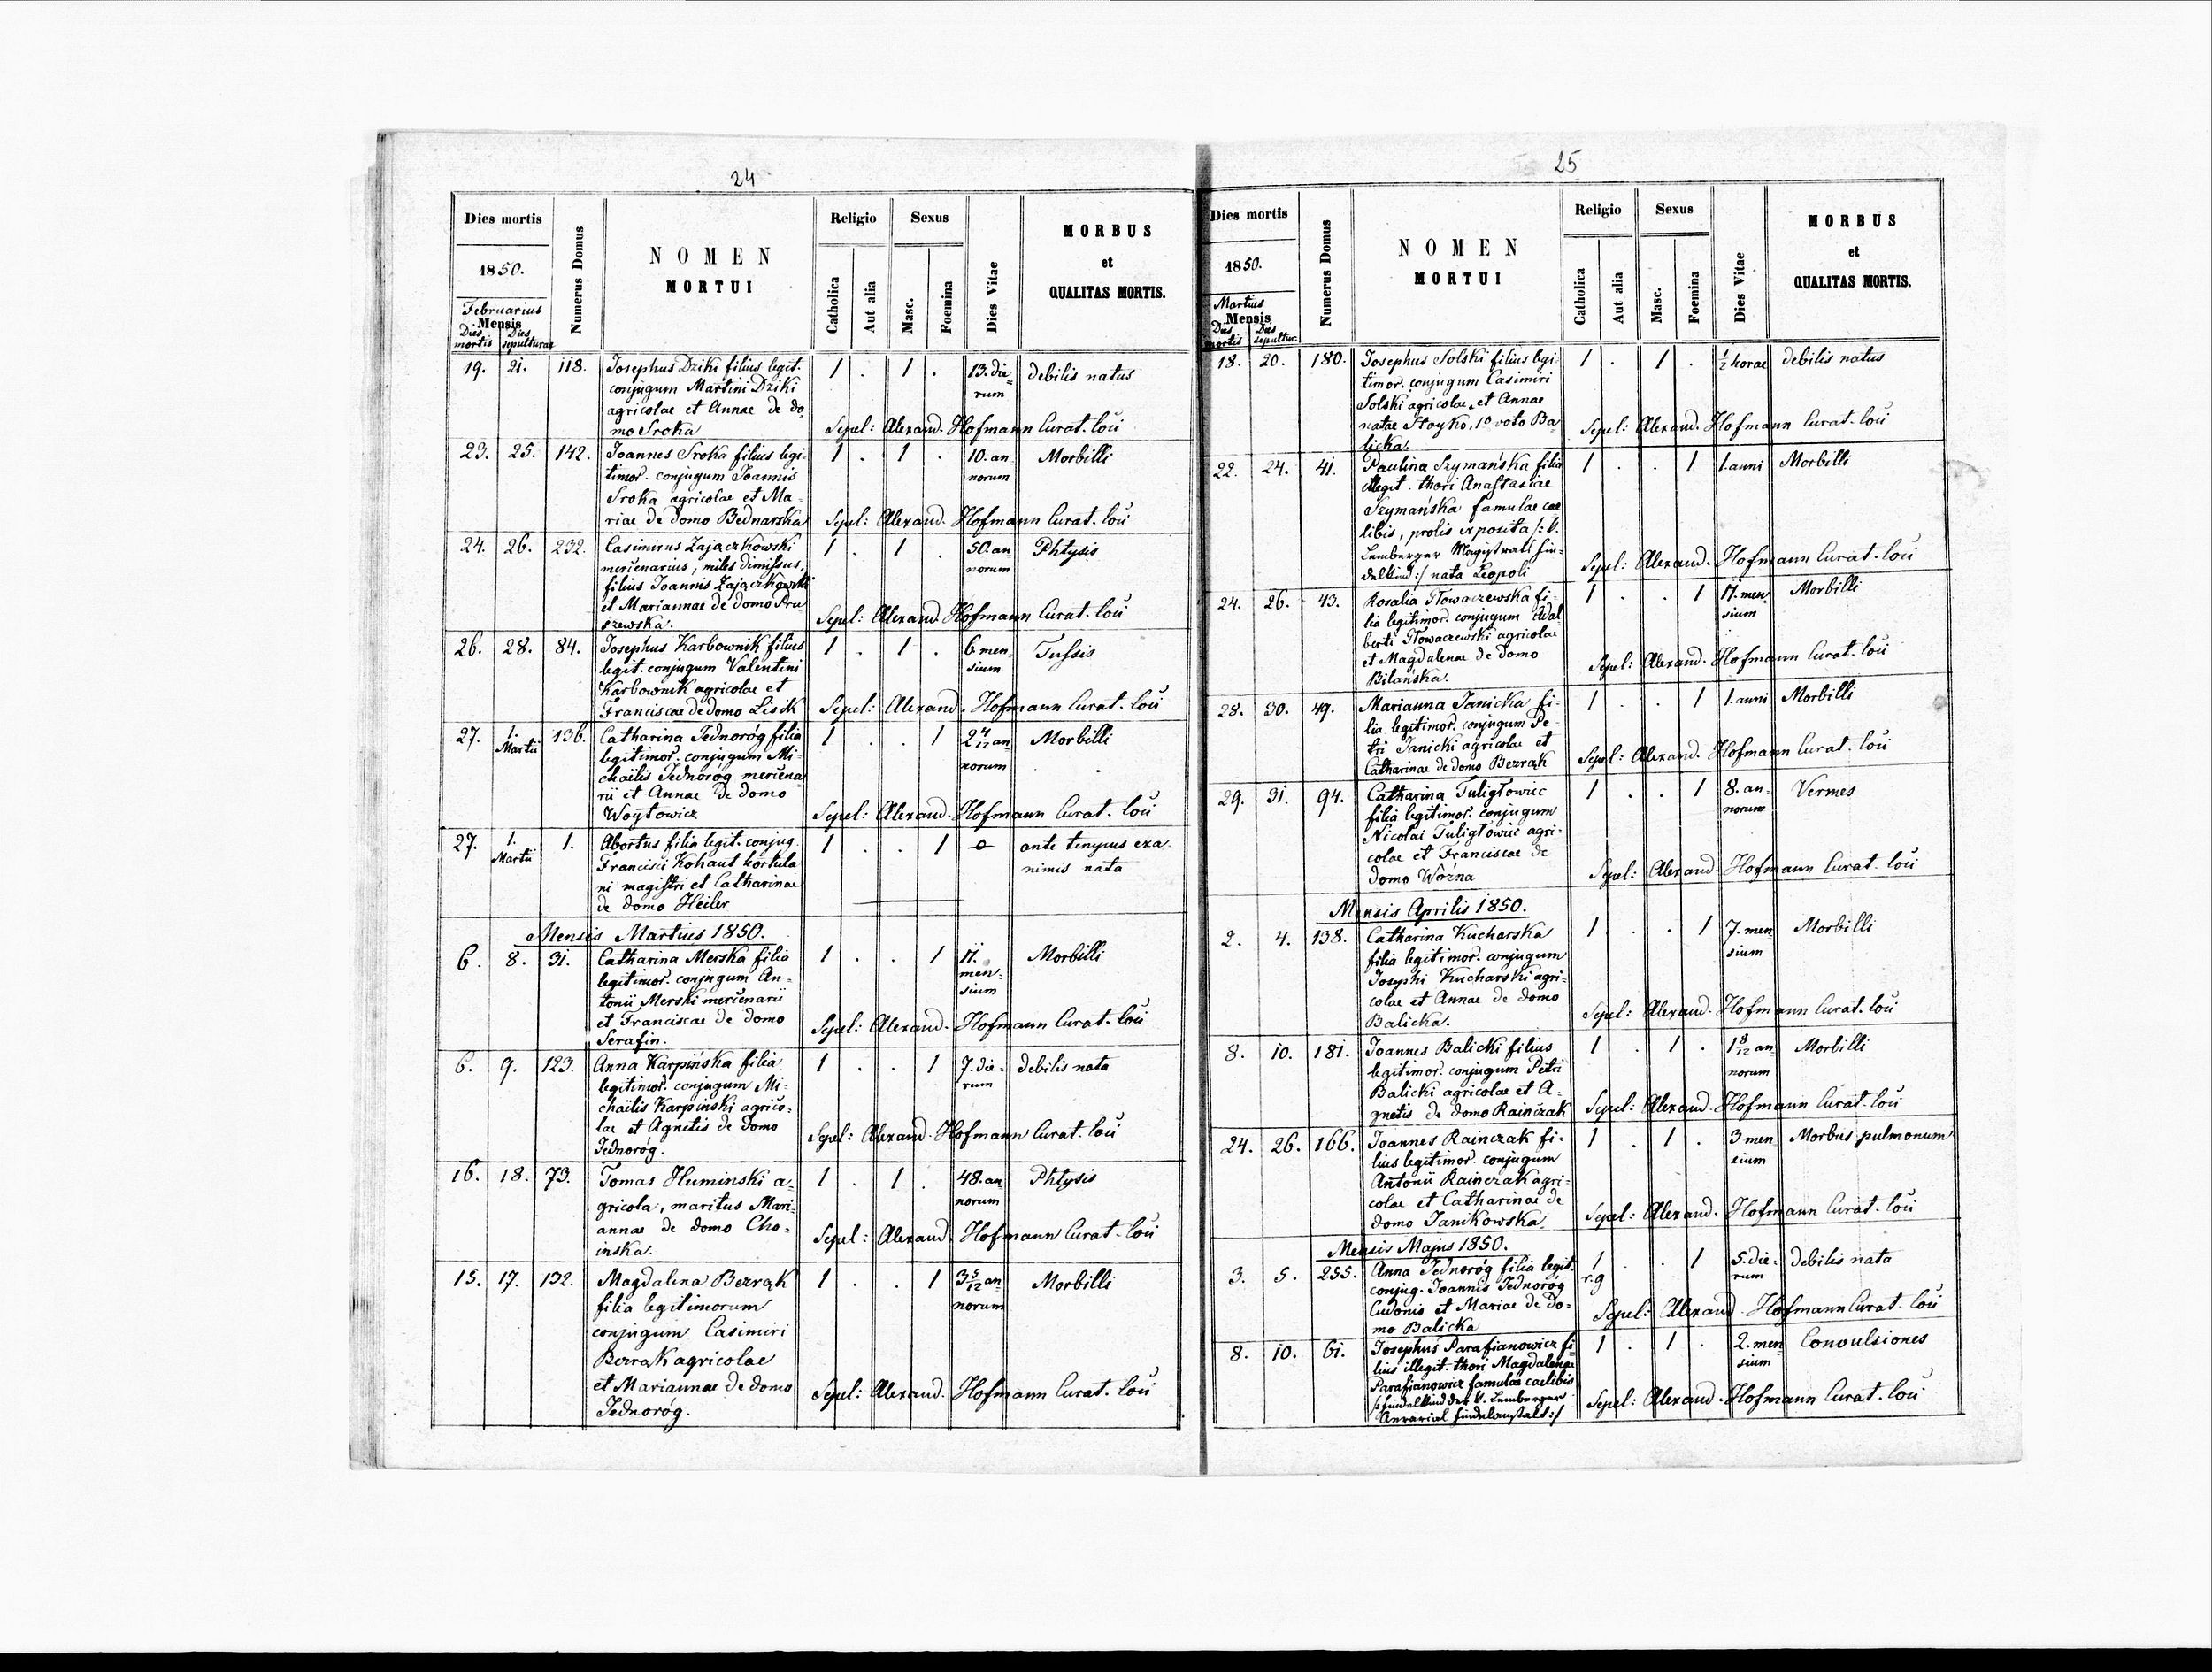 24
Dies mortis
1850.
Februarius
Mensis
Dies mortis
Dies sepulturae
Numerus Domus
NOMEN
MORTUI
Religio
Catholica
Aut alia
Sexus
Masc.
Foemina
Dies Vitae
MORBUS
et
QUALITAS MORTIS.
19. 21. 118. Josephus Dziki filius legit. 1 . 1 . 13. die= debilis natus
conjugum Martini Dziki rum
agricolae et Annae de do
mo Sroka Sepel: Alexand. Hofmann Curat. loci
23. 25. 142. Joannes Sroka filius legi- 1 . 1 . 10. an Morbilli
timor. conjugum Joannis norum
Sroka agricolae et Ma-
riae de domo Bednarska Sepel: Alexand. Hofmann Curat. loci
24. 26. 232. Casimirus Zajączkowski 1 . 1 . 50. an Phtysis
mercenarius, miles dimissus, norum
filius Joannis Zajączkowski
et Mariannae de domo Pru
szewska. Sepel: Alexand. Hofmann Curat. loci
26. 28. 84. Josephus Karbownik filius 1 . 1 . 6 men Tussis
legit. conjugum Valentini sium
Karbownik agricolae et
Franciscae de domo Lisik Sepel: Alexand. Hofmann Curat. loci
27. 1. Martii 136. Catharina Jednoróg filia 1 . . 1 2 4/12 an Morbilli
legitimor. conjugum Mi- norum
chaëlis Jednoróg mercena
rii et Annae de domo
Woytowicz Sepel: Alexand. Hofmann Curat. loci
27. 1. Martii 1. Abortus filia legit. conjug. 1 . . 1 0 ante tempus exa
Francisci Kohaut hortula nimis nata
ni magistri et Catharinae
de domo Heiler
Mensis Martius 1850.
6. 8. 31. Catharina Merska filia 1 . . 1 11. Morbilli
legitimor. conjugum An- men-
tonii Merski mercenarii sium
et Franciscae de domo
Serafin. Sepel: Alexand. Hofmann Curat. loci
6. 9. 123. Anna Karpińska filia 1 . . 1 7. die- debilis nata
legitimor. conjugum Mi- rum
chaëlis Karpinski agrico-
lae et Agnetis de domo
Jednoróg. Sepel: Alexand. Hofmann Curat. loci
16. 18. 73. Tomas Huminski a- 1 . 1 . 48. an Phtysis
gricola, maritus Mari- norum
annae de domo Cho-
inska. Sepel: Alexand. Hofmann Curat. loci
15. 17. 132. Magdalena Bezrąk 1 . . 1 3 5/12 an Morbilli
filia legitimorum norum
conjugum Casimiri
Bezrak agricolae
et Mariannae de domo Sepel: Alexand. Hofmann Curat. loci
Jednoróg.
25
Dies mortis
1850.
Martius
Mensis
Dies mortis
Dies sepultur.
Numerus Domus
NOMEN
MORTUI
Religio
Catholica
Aut alia
Sexus
Masc.
Foemina
Dies Vitae
MORBUS
et
QUALITAS MORTIS.
18. 20. 180. Josephus Solski filius legi- 1 . 1 . 1/2 horae debilis natus
timor. conjugum Casimiri
Solski agricolae et Annae
natae Stoyko, 1o voto Ba Sepel: Alexand. Hofmann Curat. loci
licka.
22. 24. 41. Paulina Szymańska filia 1 . . 1 1. anni Morbilli
illegit. thori Anastasiae
Szymańska famulae cae
libis, prolis exposita /: V.
Lemberger Magistrats Fin-
delkind :/ nata Leopoli Sepel: Alexand. Hofmann Curat. loci
24. 26. 43. Rosalia Głowaczewska fi- 1 . . 1 11. men Morbilli
lia legitimor. conjugum Adal sium
berti Głowaczewski agricolae
et Magdalenae de domo
Bilańska. Sepel: Alexand. Hofmann Curat. loci
28. 30. 49. Marianna Janicka fi- 1 . . 1 1. anni Morbilli
lia legitimor. conjugum Pe-
tri Janicki agricolae et
Catharinae de domo Bezrąk Sepel: Alexand. Hofmann Curat. loci
29. 31. 94. Catharina Tuligłowic 1 . . 1 8. an- Vermes
filia legitimor. conjugum norum
Nicolai Tuligłowic agri-
colae et Franciscae de
domo Woźna Sepel: Alexand. Hofmann Curat. loci
Mensis Aprilis 1850.
2. 4. 138. Catharina Kucharska 1 . . 1 7. men Morbilli
filia legitimor. conjugum sium
Josephi Kucharski agri-
colae et Annae de domo
Balicka. Sepel: Alexand. Hofmann Curat. loci
8. 10. 181. Joannes Balicki filius 1 . 1 . 1 8/12 an Morbilli
legitimor. conjugum Petri norum
Balicki agricolae et A-
gnetis de domo Rainczak Sepel: Alexand. Hofmann Curat. loci
24. 26. 166. Joannes Rainczak fi- 1 . 1 . 3 men Morbus pulmonum
lius legitimor. conjugum sium
Antonii Rainczak agri-
colae et Catharinae de
domo Janikowska. Sepel: Alexand. Hofmann Curat. loci
Mensis Majus 1850.
3. 5. 255. Anna Jednoróg filia legit. 1 . . 1 5. die- debilis nata
conjug. Joannis Jednoróg r.g rum
Cudonis et Mariae de do-
mo Balicka Sepel: Alexand. Hofmann Curat. loci
8. 10. 61. Josephus Parafianowicz fi- 1 . 1 . 2. men Convulsiones
lius illegit. thori Magdalenae sium
Parafianowicz famulae caelibis
/: Findelkind der V. Lemberger
Aerarial Findelanstalt :/ Sepel: Alexand. Hofmann Curat. loci